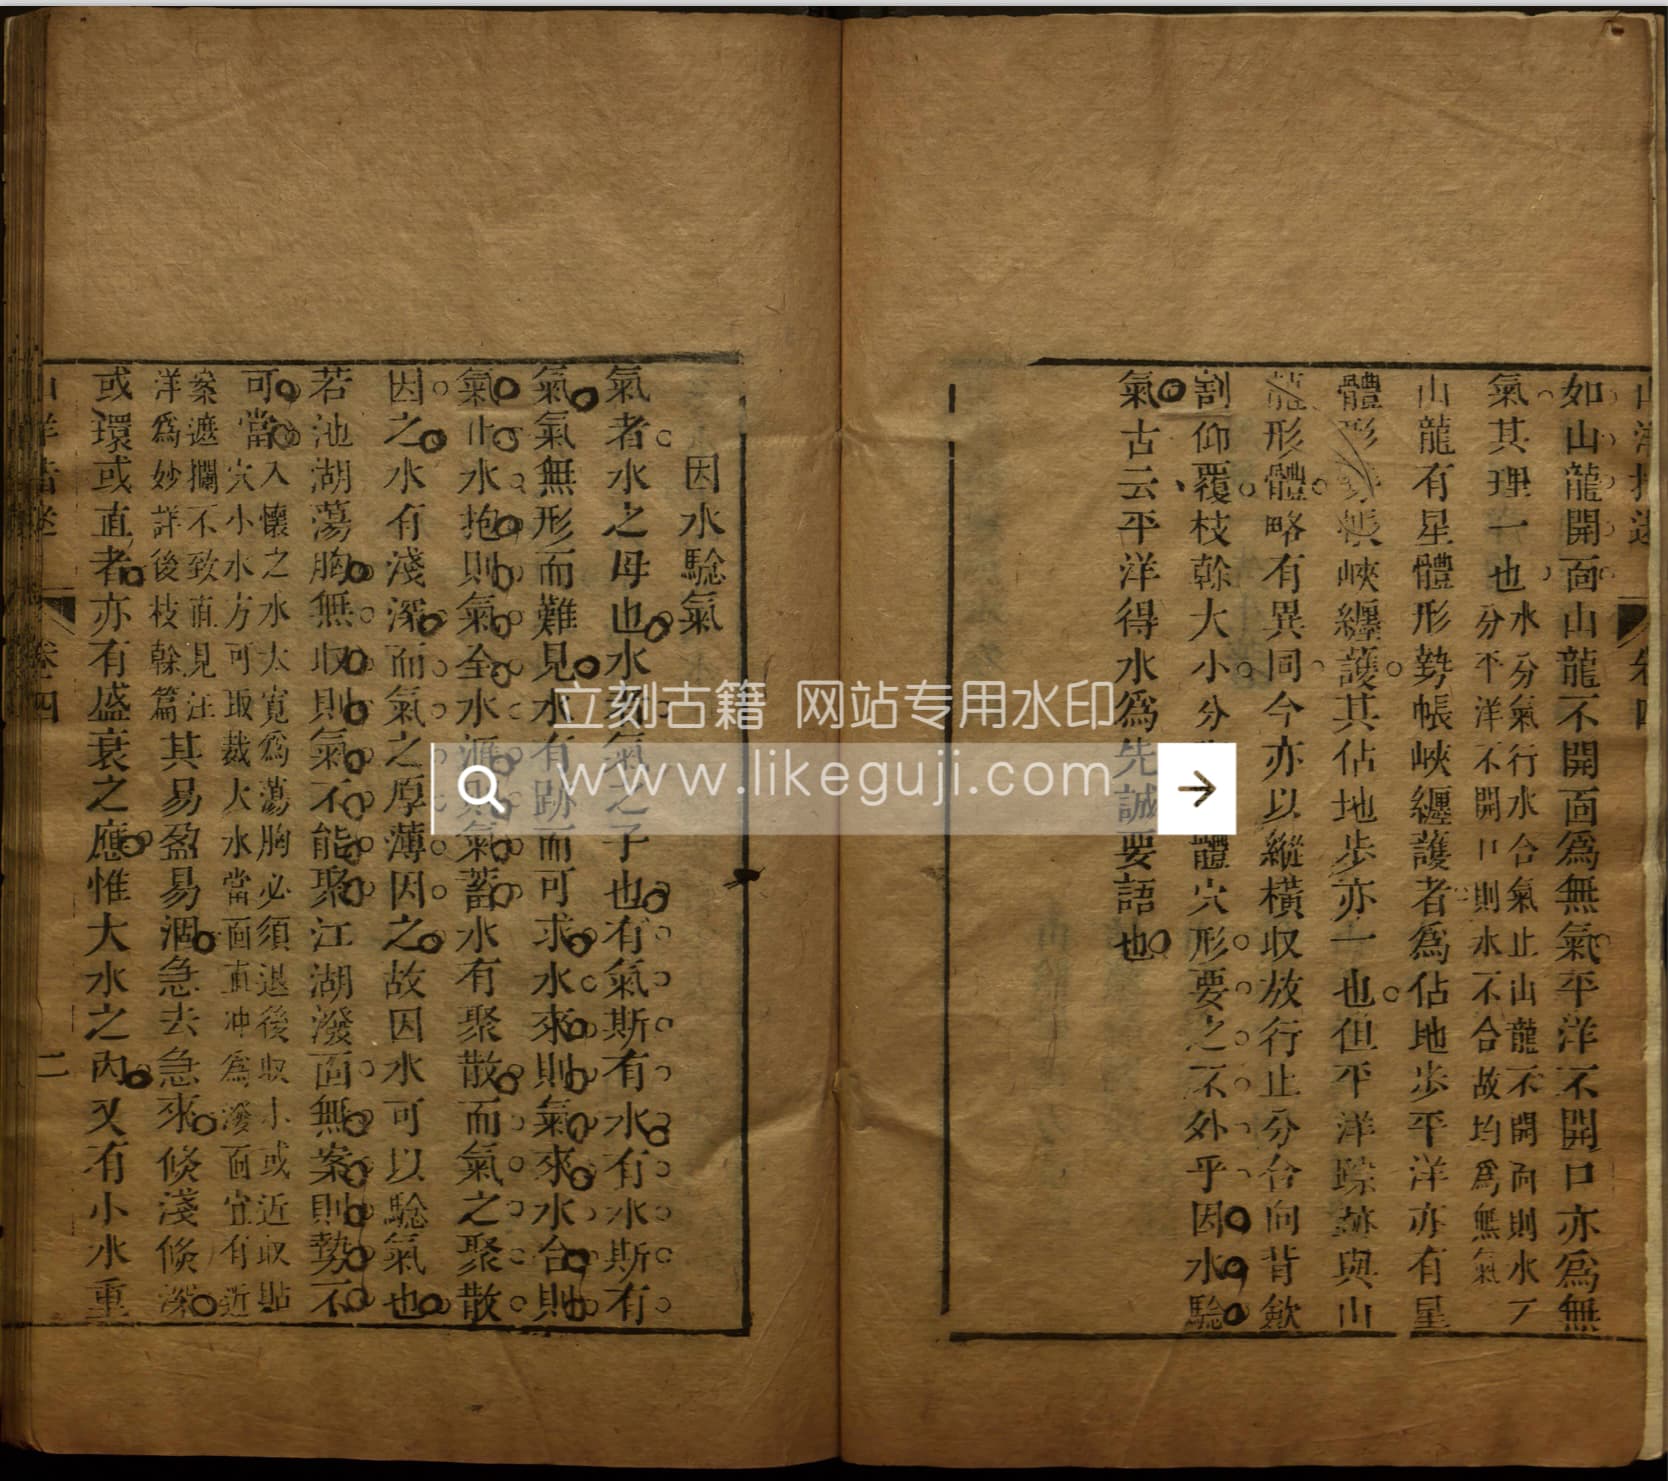 如山龍開面山龍不開面爲無氣平洋不開口亦爲無
氣其理一也
水分氣行水合氣止山龍不開面則水不
分平洋不開口則水不合故均爲無氣
山龍有星體形勢帳峽纏護者爲佔地步平洋亦有星
體形帳峽纏護其佔地步亦一也但平洋踪跡與山
龍形體略有異同今亦以縱橫収放行止分合向背歛
割仰覆枝榦大小分體穴形要之不外乎因水驗
氣古云平洋得水爲先誠要語也
卷四
因水驗氣
氣者水之母也水者氣之子也有氣斯有水有水斯有
氣氣無形而難見水有跡而可求水來則氣來水合則
氣止水抱則氣全水滙則氣蓄水有聚散而氣之聚散
因之水有淺深而氣之厚薄因之故因水可以驗氣也
若池湖蕩胸無収則氣不能聚江湖潑面無案則勢不
可當
入懷之水太寬爲蕩胸必須退後収小或近収貼
穴小水方可取裁大水當面直冲爲潑面宜有近
案遮攔不致直見汪
洋爲妙詳後枝榦篇
其易盈易涸急去急來倐淺倐深
或環或直者亦有盛衰之應惟大水之內又有小水重
卷四
二
立刻古籍 网站专用水印
www.likeguji.com